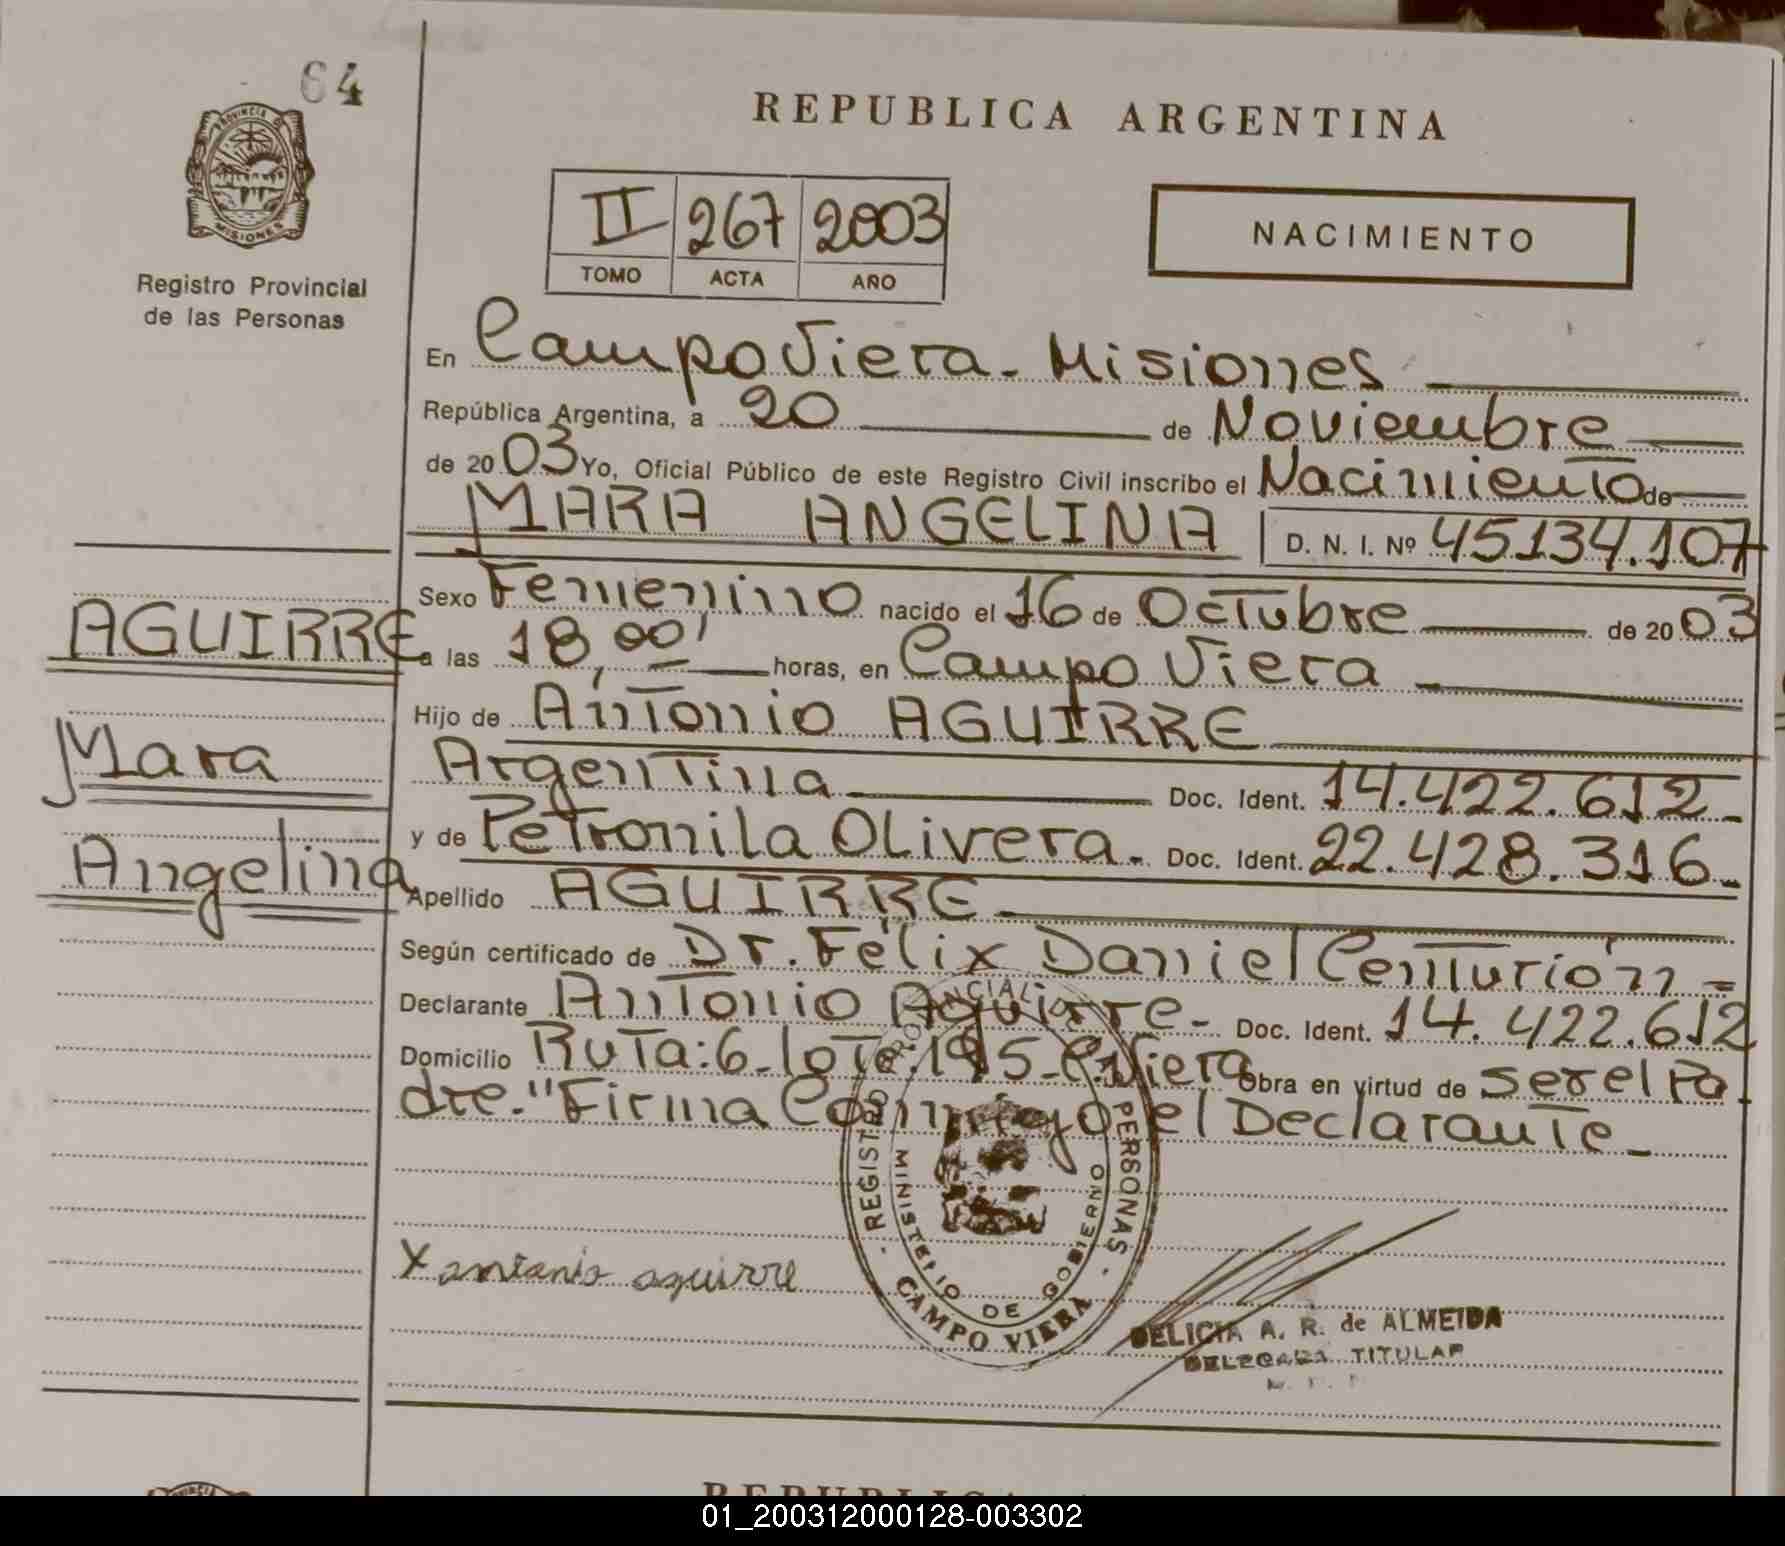 64
PROVINCIA D
MISIONES
Registro Provincial
de las Personas
REPUBLICA ARGENTINA
II 267 2003
TOMO ACTA AÑO
NACIMIENTO
En Campo Viera - Misiones
República Argentina, a 20 de Noviembre
de 2003 Yo, Oficial Público de este Registro Civil inscribo el Nacimiento de
MARA ANGELINA D. N. I. Nº 45.134.107
Sexo Femenino nacido el 16 de Octubre de 2003
AGUIRRE
a las 18,00' horas, en Campo Viera
Hijo de Antonio AGUIRRE
Mara
Argentina Doc. Ident. 14.422.612-
y de Petronila OLivera- Doc. Ident. 22.428.316-
Angelina
Apellido AGUIRRE
Según certificado de Dr. Félix Daniel Centurión-
Declarante Antonio Aguirre- Doc. Ident. 14.422.612
Domicilio Ruta:6-lote:195-C.Viera Obra en virtud de ser el Pa
dre-"Firma Conmigo el Declarante-
REGISTRO PROVINCIAL PERSONAS
MINISTERIO DE GOBIERNO
CAMPO VIERA
X antonio aguirre
DELICIA A. R. de ALMEIDA
DELEGADA TITULAR
01_200312000128-003302